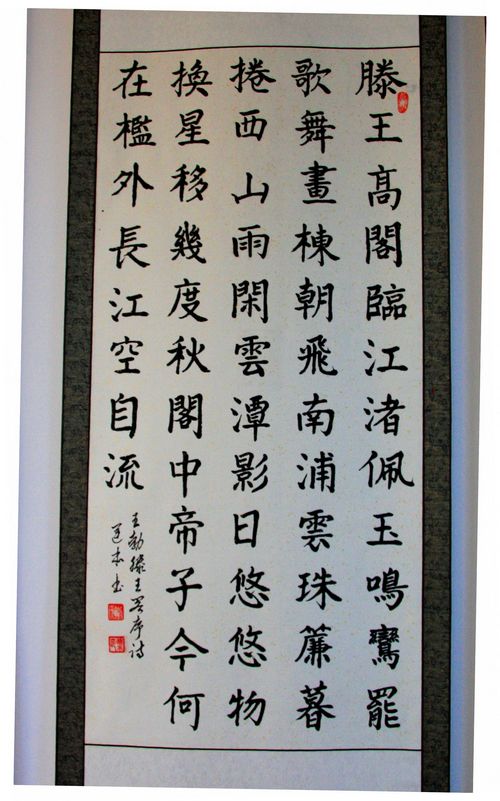 滕王高閣臨江渚佩玉鳴鸞罷
歌舞畫棟朝飛南浦雲珠簾暮
捲西山雨閑雲潭影日悠悠物
換星移幾度秋閣中帝子今何
在檻外長江空自流
王勃滕王阁序诗
书